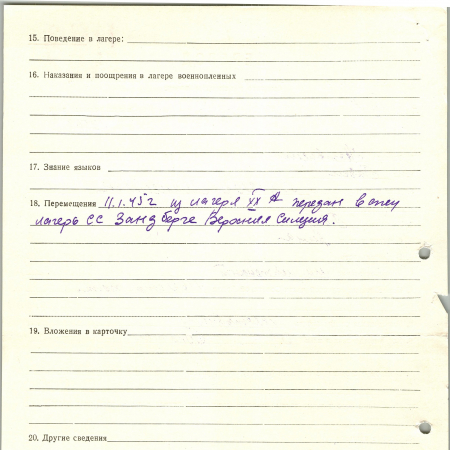 15. Поведение в лагере:
16. Наказания и поощрения в лагере военнопленных
17. Знание языков
18. Перемещения 11.1.45г из лагеря XX А передан в спец
лагерь СС Зандберге Верхняя Силезия.
19. Вложения в карточку
20. Другие сведения